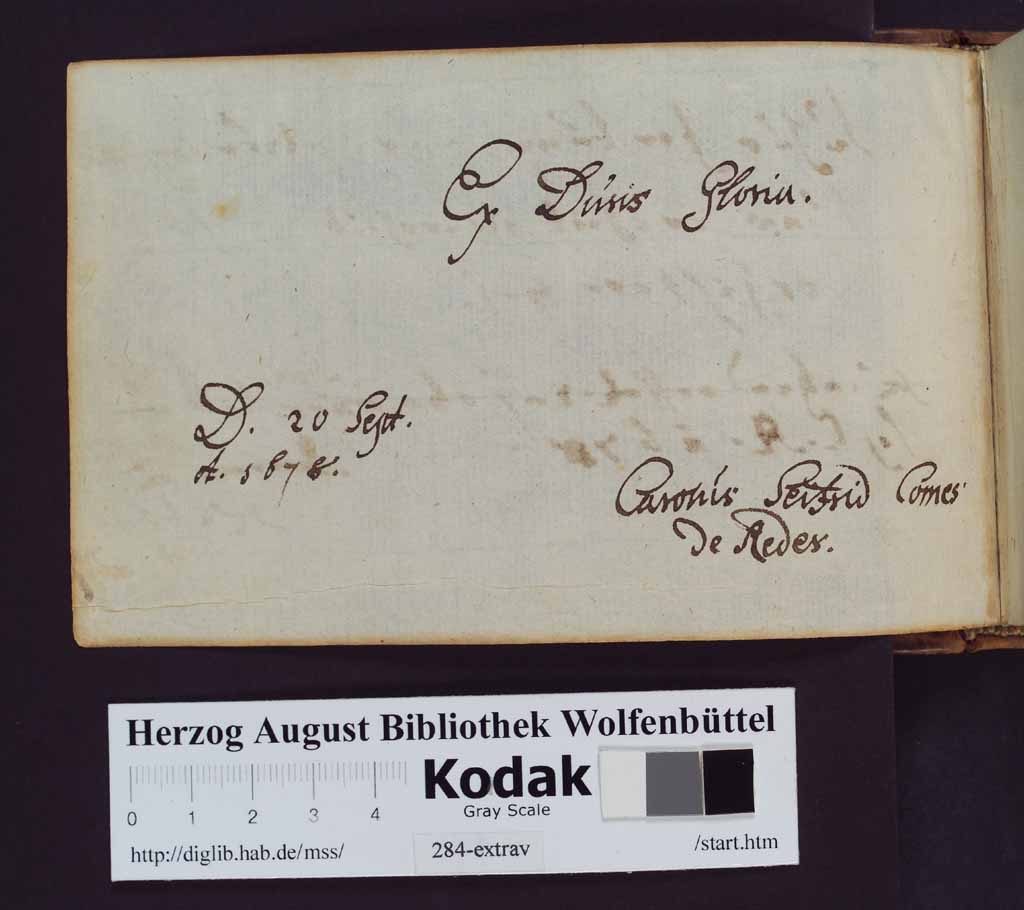 Ex Duris Gloria.
D. 20 Sept.
A. 1678.
Carolus Seifrid Comes
de Reder.
Herzog August Bibliothek Wolfenbüttel
0 1 2 3 4
Kodak
Gray Scale
http://diglib.hab.de/mss/ 284-extrav /start.htm